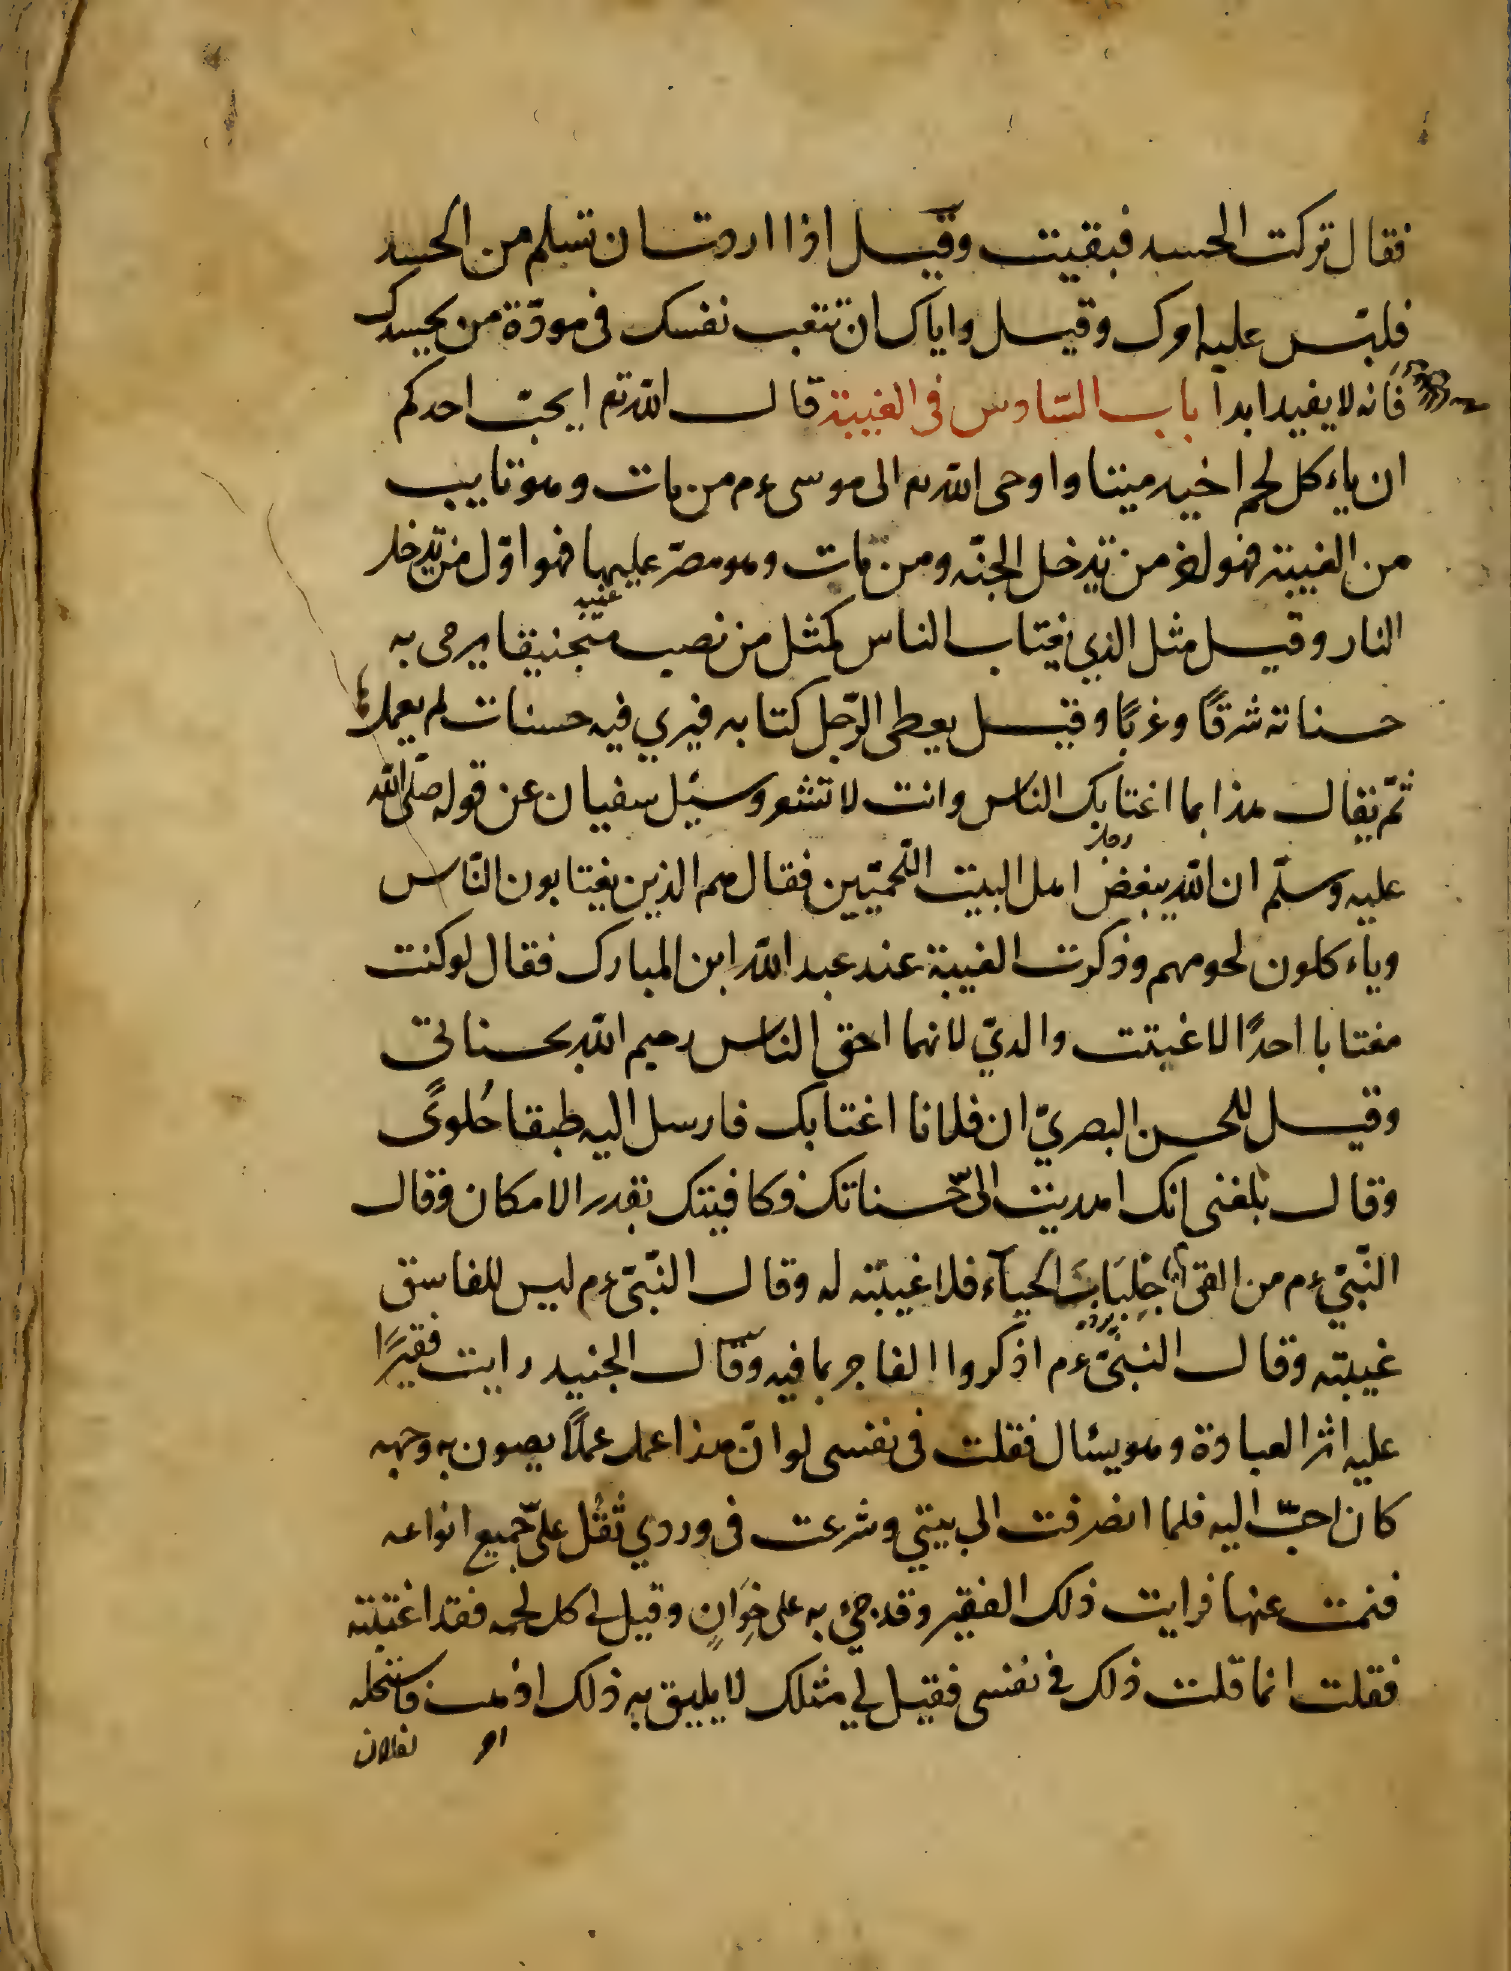 فقال تركت الحسد فبقيت وقيل اذا اردت ان تسلم من الحسد
فلبس عليه امرك وقيل واياك ان تتعب نفسك فى مودّة من يحسدك
فانه لا يفيد ابدا باب السّادس فى الغيبة قال اللّه تع ايحبّ احدكم
ان ياءكل لحم اخيه ميتا واوحى اللّه تع الى موسى ءم من مات وهو تايب
من الغيبة فهو اخر من يدخل الجنّه ومن مات وهو مصرّ عليها فهو اوّل من يدخل
النار وقيل مثل الذي يغتاب الناس كمثل من نصب منجنيقا يرمى به
حسناته شرقًا وغربًا وقيل يعطى الرّجل كتابه فيري فيه حسنات لم يعملها
ثمّ يقال هذا بما اغتابك الناس وانت لا تشعر وسئيل سفيان عن قوله صلّى اللّه
عليه وسلّم ان اللّه يبغض اهل البيت اللّحميّين فقال هم الذين يغتابون النّاس
وياءكلون لحومهم وذكرت الغيبة عند عبد اللّه ابن المبارك فقال لو كنت
مغتابا احدًا لاغتبت والديّ لانهما احق الناس رحيم اللّه بحسناتى
وقيل للحسن البصريّ ان فلانا اغتابك فارسل اليه طبقا حُلوىً
وقال بلغنى انك اهديت الىّ حسناتك فكافيتك بقدر الامكان وقال
النّبيّ ءم من القى جِلبَابَ الحيآء فلا غيبته له وقال النّبىّ ءم ليس للفاسق
غيبته وقال النبىّ ءم اذكروا الفاجر بما فيه وقال الجنيد رايت فقيرًا
عليه اثر العبادة وهو يسئال فقلت فى نفسى لو انّ هذا عمل عملًا يصون به وجهه
كان احبّ اليه فلما انصرفت الى بيتي وشرعت فى وردي ثقُل علىّ جميع انواعه
فنمت عنها فرايت ذلك الفقير وقد جئ به على خِوَانٍ وقيل لى كل لحمه فقد اغتبته
فقلت انما قلت ذلك فى نفسى فقيل لي مثلك لا يليق به ذلك اذهب فاستحله